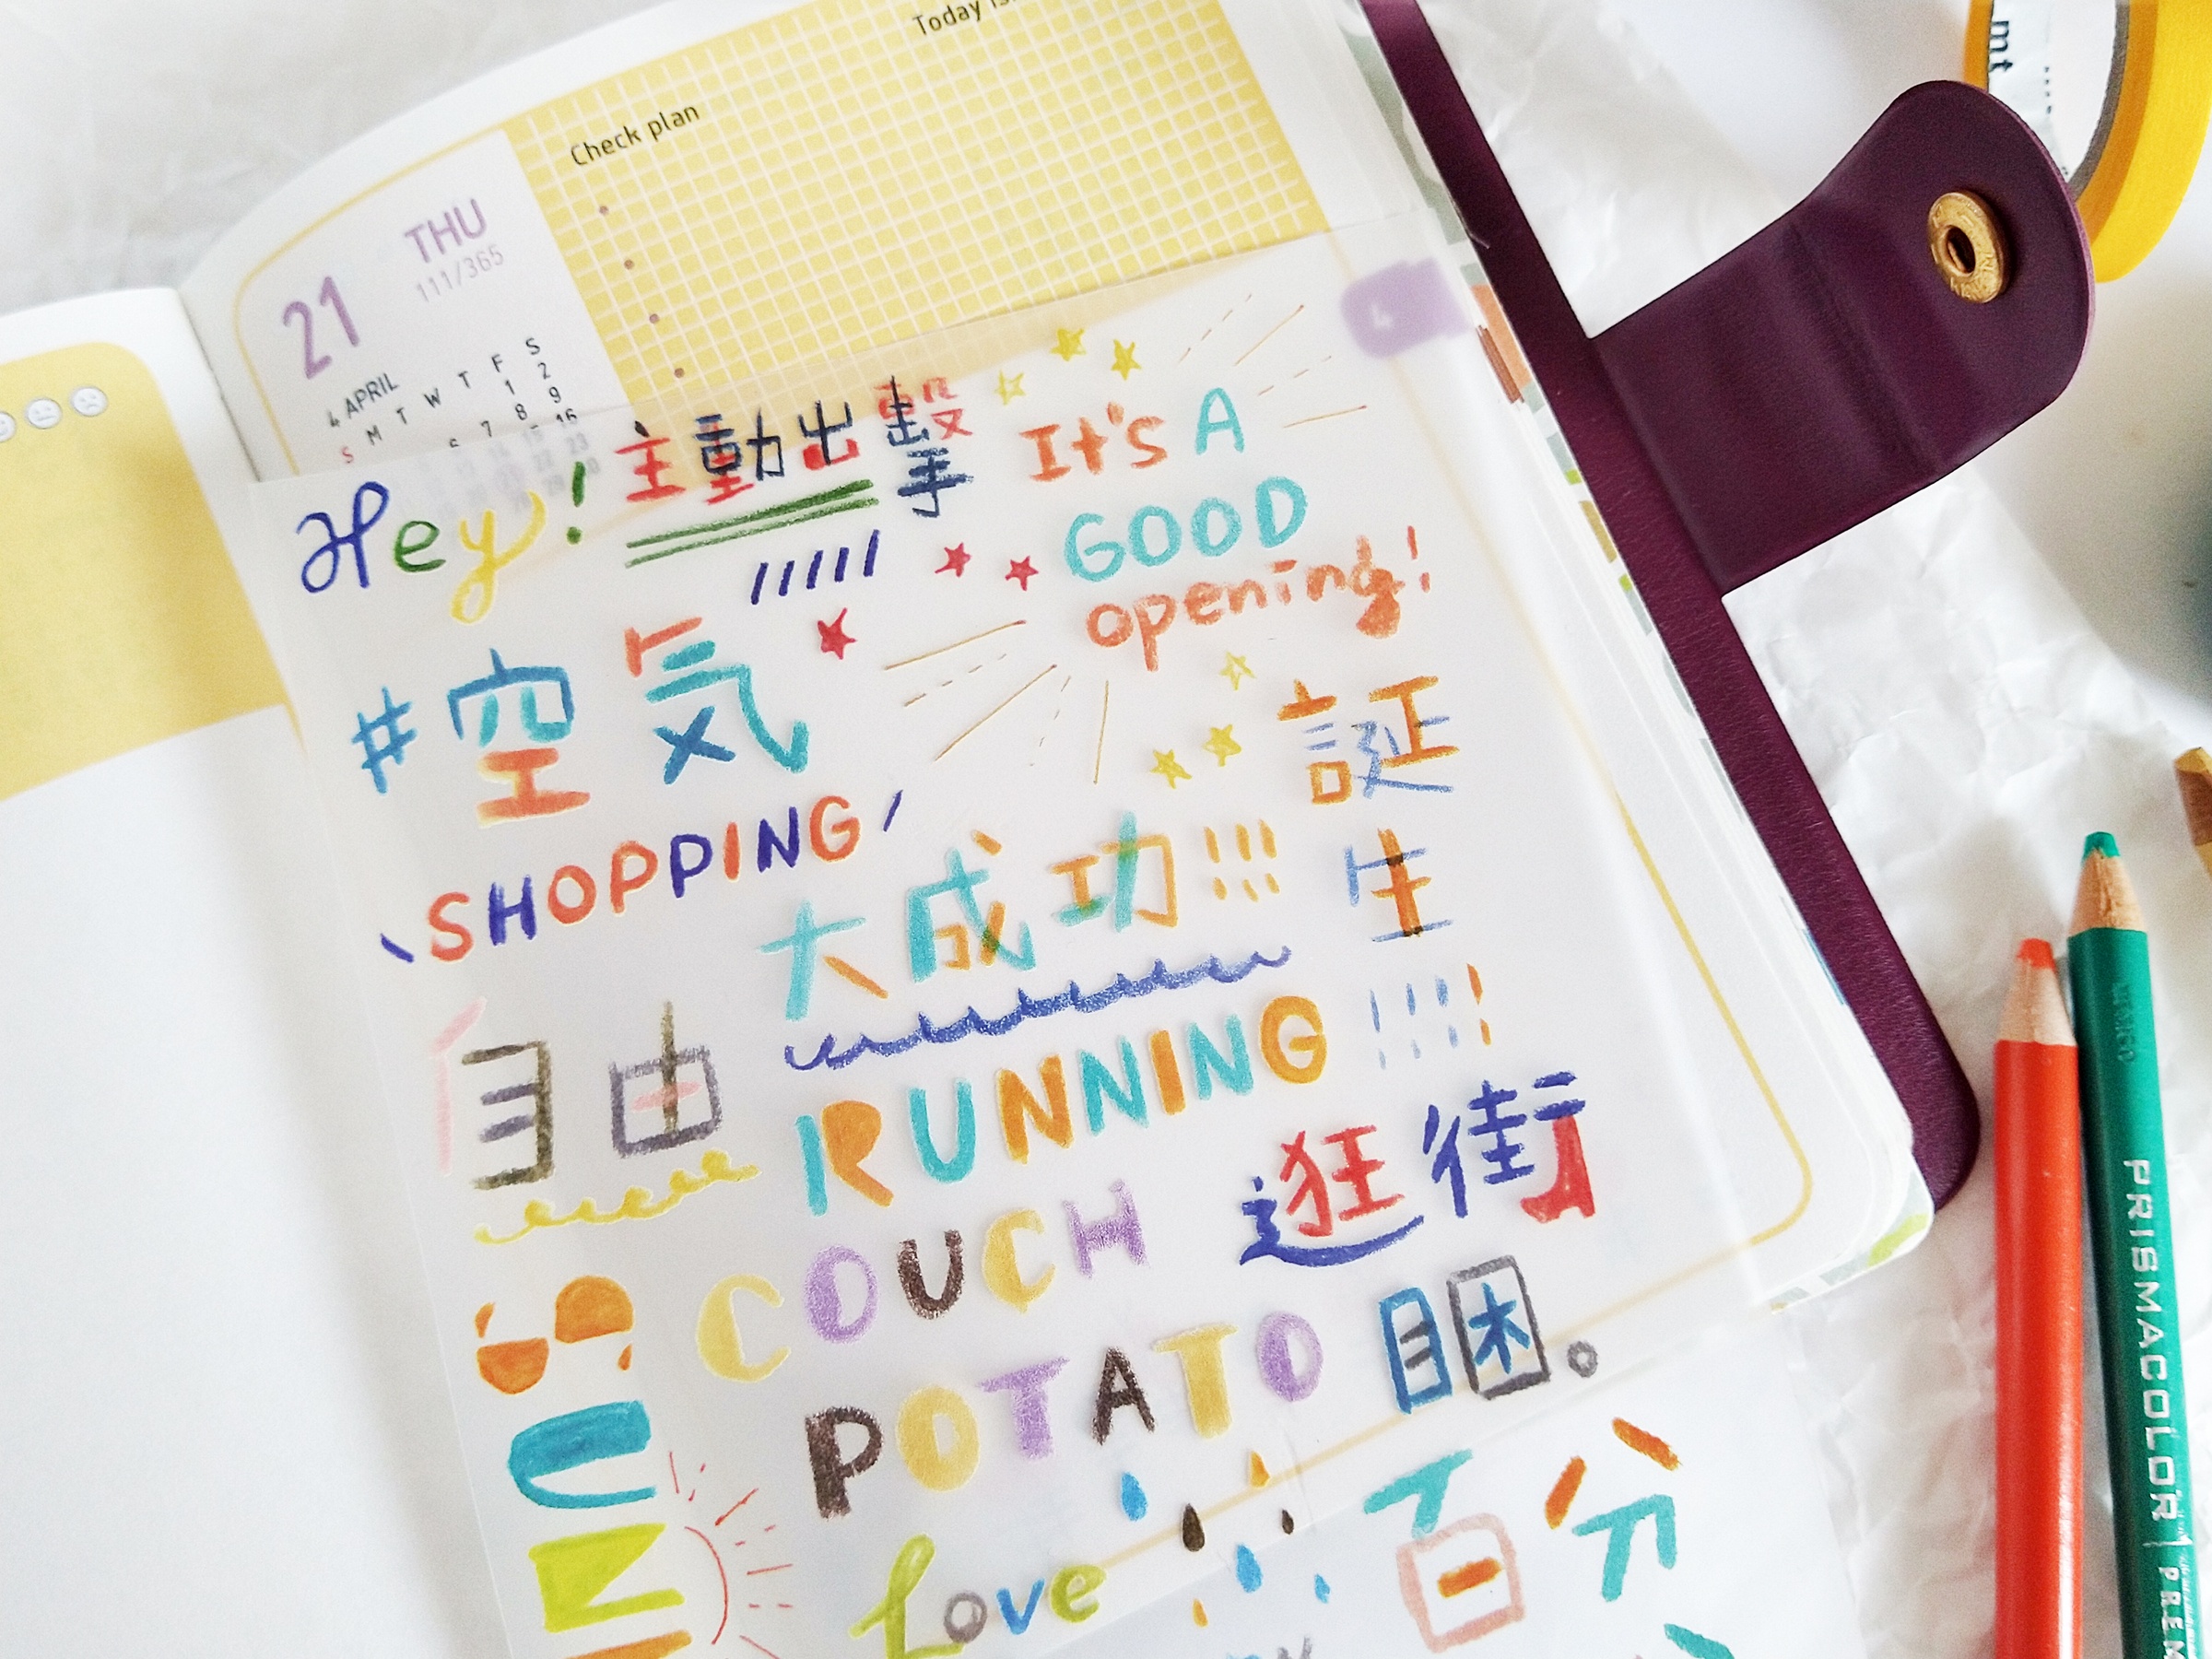 Today is
Check plan
THU
111/365
21
4 APRIL
S M T W T F S
1 2
6 7 8 9
16
4
Hey! 主動出擊
It's A
GOOD
opening!
#空気
誕生!!!!
SHOPPING
大成功!!!
自由
RUNNING
逛街
SUN
COUCH
POTATO
睏。
Love
百分
mt
PRISMACOLOR | PREM